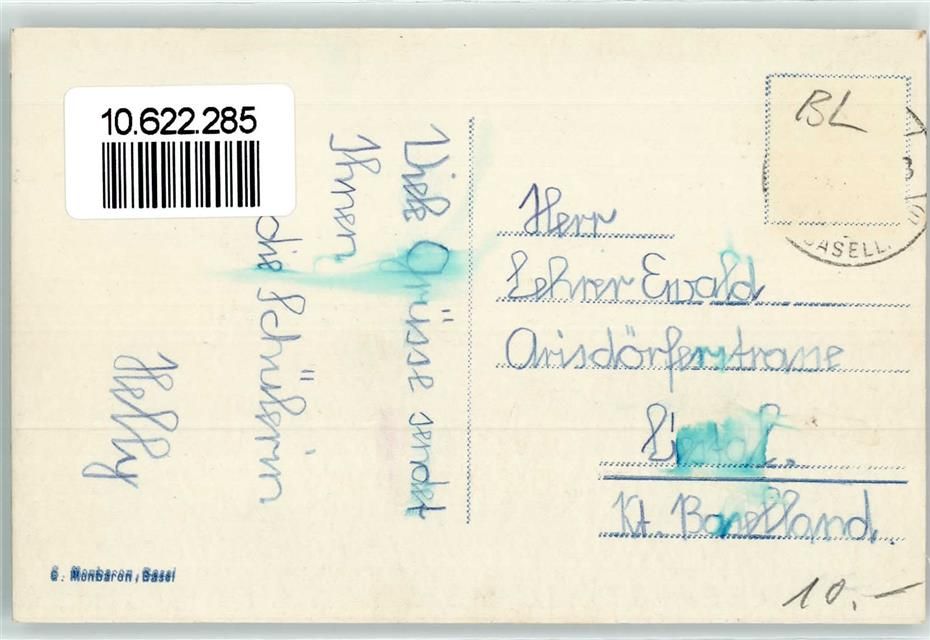 10.622.285
BL
BASELL.
Viele Grüsse sendet
Ihnen
die Schülerin
Helly
Herr
Lehrer Ewald
Arisdörferstrasse
Liestal.
Kt. Baselland.
C. Monbaron, Basel
10.-